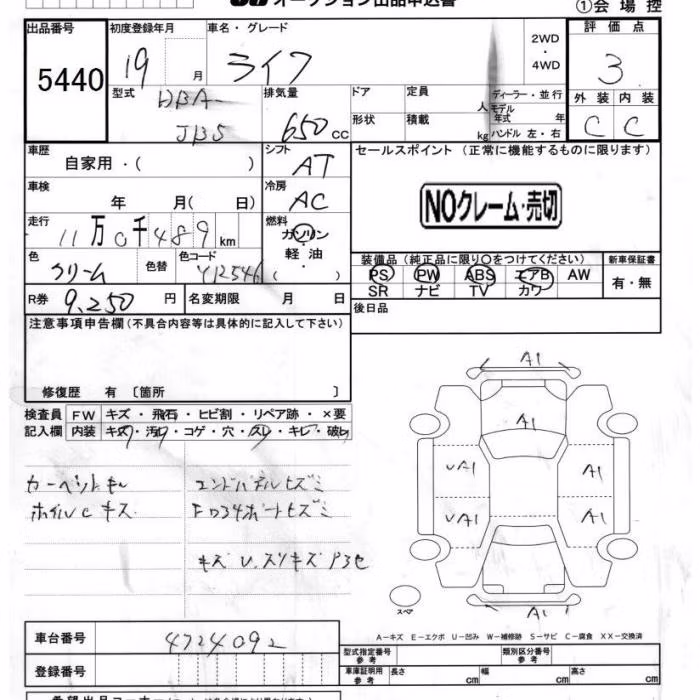 オークション出品申込書
①会場控
出品番号 初度登録年月 車名・グレード 2WD・4WD 評価点
5440 19 月 ライフ 3
型式 排気量 ドア 定員 人 ディーラー・並行 外装 内装
DBA- モデル年式 年
JB5 650 cc 形状 積載 kg ハンドル 左・右 C C
車歴 シフト セールスポイント (正常に機能するものに限ります)
自家用・( ) AT
車検 冷房
年 月( 日) AC NOクレーム・売切
走行 燃料
11万0千489km ガソリン
軽油
・( )
色 色替 色コード 装備品 (純正品に限り○をつけてください) 新車保証書
クリーム 412546 PS PW ABS エアB AW 有・無
SR ナビ TV カワ
R券 9,250円 名変期限 月 日 後日品
注意事項申告欄(不具合内容等は具体的に記入して下さい)
修復歴 有 〔箇所 〕
検査員 FW キズ・飛石・ヒビ割・リペア跡・×要
記入欄 内装 キズ・汚れ・コゲ・穴・スレ・キレ・破れ
ホイルCキズ
A1
A1
UA1 A1
UA1 A1
A1
スペア
A-キズ E-エクボ U-凹み W-補修跡 S-サビ C-腐食 XX-交換済
車台番号 4724092
型式指定番号 参考 類別区分番号 参考
登録番号 車庫証明用 参考 長さ cm 幅 cm 高さ cm